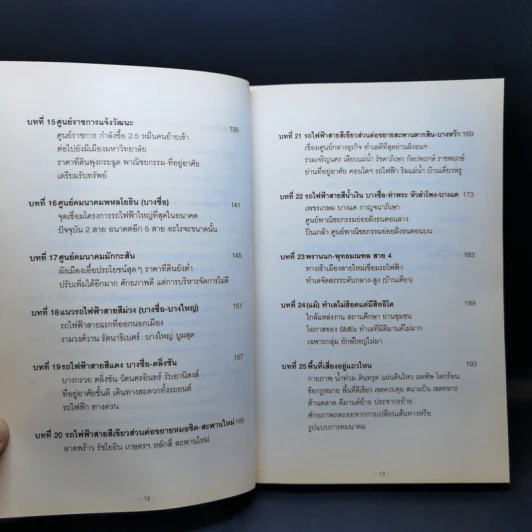 บทที่ 15 ศูนย์ราชการแจ้งวัฒนะ 135
ศูนย์ราชการ กำลังซื้อ 2.5 หมื่นคนย้ายเข้า
ต่อไปยังมีเมืองมหาวิทยาลัย
ราคาที่ดินพุ่งกระฉูด พาณิชยกรรม-ที่อยู่อาศัย
เตรียมรับทรัพย์
บทที่ 16 ศูนย์คมนาคมพหลโยธิน (บางซื่อ) 141
จุดเชื่อมโครงการรถไฟฟ้าใหญ่ที่สุดในอนาคต
ปัจจุบัน 2 สาย อนาคตอีก 5 สาย อะไรจะขนาดนั้น
บทที่ 17 ศูนย์คมนาคมมักกะสัน 145
ผังเมืองเอื้อประโยชน์สุดๆ ราคาที่ดินยังต่ำ
ปรับเพิ่มได้อีกมาก ศักยภาพดี แต่การบริหารจัดการไม่ดี
บทที่ 18 แนวรถไฟฟ้าสายสีม่วง (บางซื่อ-บางใหญ่) 151
รถไฟฟ้าสายแรกที่ออกนอกเมือง
งามวงศ์วาน รัตนาธิเบศร์ บางใหญ่ บูมสุด
บทที่ 19 รถไฟฟ้าสายสีแดง บางซื่อ-ตลิ่งชัน 157
บางกรวย ตลิ่งชัน วัดนครอินทร์ รับอานิสงส์
ที่อยู่อาศัยชั้นดี เดินทางสะดวกทั้งรถยนต์
รถไฟฟ้า ทางด่วน
บทที่ 20 รถไฟฟ้าสายสีเขียวส่วนต่อขยายหมอชิต-สะพานใหม่ 165
ลาดพร้าว รัชโยธิน เกษตรฯ หลักสี่ สะพานใหม่
- 12 -
บทที่ 21 รถไฟฟ้าสายสีเขียวส่วนต่อขยายสะพานตากสิน-บางหว้า 169
เชื่อมศูนย์กลางธุรกิจ ทำเลที่สุดย่านฝั่งธนฯ
รวมเจริญนคร เลียบแม่น้ำ รัชดาภิเษก กัลปพฤกษ์ ราชพฤกษ์
ย่านที่อยู่อาศัย คอนโดฯ รถไฟฟ้า ริมแม่น้ำ บ้านเดี่ยวหรู
บทที่ 22 รถไฟฟ้าสายสีน้ำเงิน บางซื่อ-ท่าพระ หัวลำโพง-บางแค 173
เพชรเกษม บางแค กาญจนาภิเษก
ศูนย์พาณิชยกรรมย่อยฝั่งธนตอนล่าง
ปิ่นเกล้า ศูนย์พาณิชยกรรมย่อยฝั่งธนตอนบน
บทที่ 23 พรานนก-พุทธมณฑล สาย 4 183
ทางเข้าเมืองสายใหม่เชื่อมรถไฟฟ้า
ทำเลจัดสรรระดับกลาง-สูง (บ้านเดี่ยว)
บทที่ 24 (แม้) ทำเลไม่ฮ็อตแต่มีสิทธิ์โต 189
ใกล้แหล่งงาน สถานศึกษา ย่านชุมชน
โอกาสของ SMEs ทำเลที่มีดีมานด์ไม่มาก
เฉพาะกลุ่ม ยักษ์ใหญ่ไม่มา
บทที่ 25 พื้นที่เสี่ยงอยู่แถวไหน 193
กายภาพ น้ำท่วม ดินทรุด แผ่นดินไหว มลพิษ โลกร้อน
ข้อกฎหมาย พื้นที่สีเขียว เขตควบคุม สนามบิน เขตทหาร
ด้านตลาด ดีมานด์ย้าย ประชากรย้าย
ศักยภาพถดถอยจากการเปลี่ยนเส้นทางหรือ
รูปแบบการคมนาคม
- 13 -